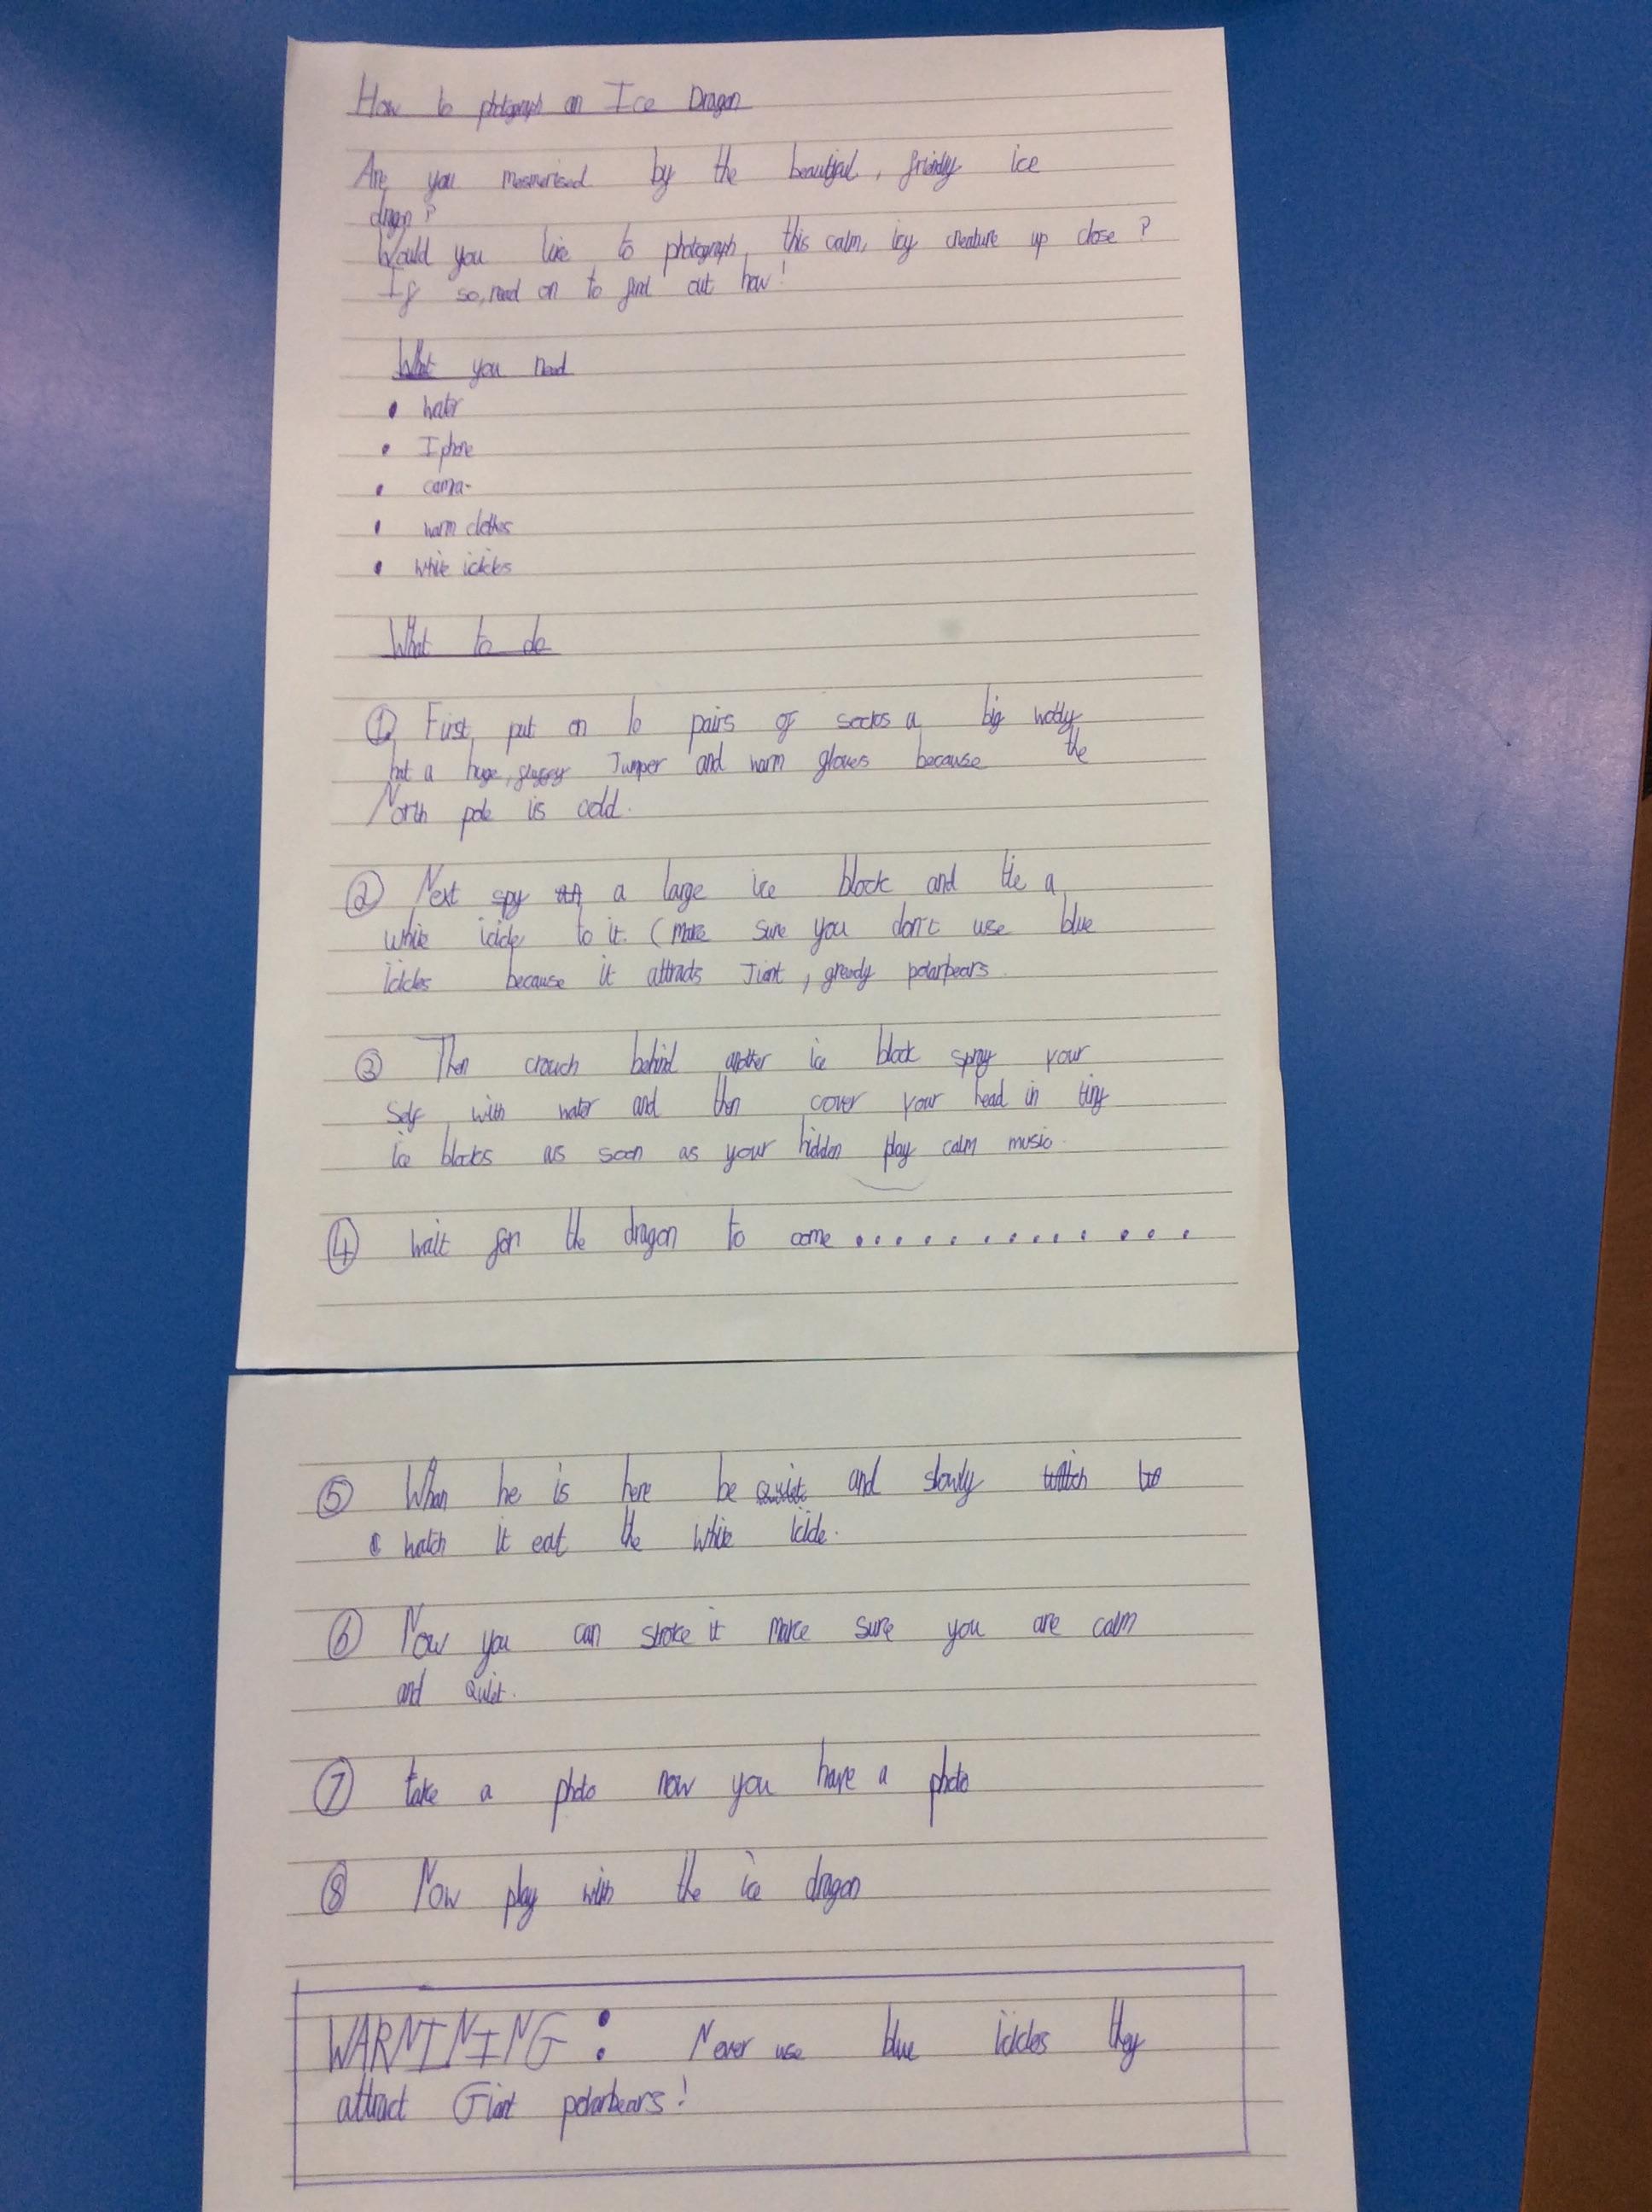 How to photograph an Ice Dragon
Are you mesmerised by the beautiful, friendly ice
dragon?
Would you like to photograph this calm, icy creature up close?
If so, read on to find out how!
What you need
• water
• I phone
• camra
• warm clothes
• white icicles
What to do
① First, put on 10 pairs of socks a big woolly
hat a huge, fluffy Jumper and warm gloves because the
North pole is cold.
② Next spy a large ice block and tie a
white icicle to it. (Make sure you don't use blue
icicles because it attracts Jiant, greedy polarbears.
③ Then crouch behind another ice block spray your
self with water and then cover your head in tiny
ice blocks as soon as your hidden play calm music.
④ wait for the dragon to come..............
⑤ When he is here be quiet and slowly
watch it eat the white icicle.
⑥ Now you can stroke it make sure you are calm
and quiet.
⑦ take a photo now you have a photo
⑧ Now play with the ice dragon
WARNING: Never use blue icicles they
attract Giant polarbears!